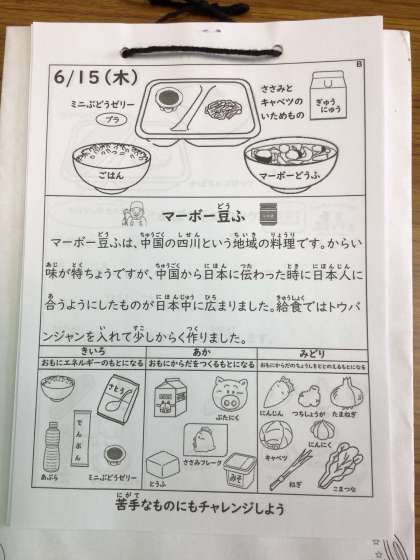 B
6/15(木)
ミニぶどうゼリー
プラ
ささみと
キャベツの
いためもの
ぎゅう
にゅう
ごはん
マーボーどうふ
マーボー豆ふ
マーボー豆ふは、中国の四川という地域の料理です。からい
味が特ちょうですが、中国から日本に伝わった時に日本人に
合うようにしたものが日本中に広まりました。給食ではトウバ
ンジャンを入れて少しからく作りました。
きいろ
おもにエネルギーのもとになる
さとう
でんぷん
あぶら
ミニぶどうゼリー
あか
おもにからだをつくるもとになる
ぶたにく
ささみフレーク
とうふ
みそ
みどり
おもにからだのちょうしをととのえるもとになる
にんじん
つちしょうが
たまねぎ
キャベツ
にんにく
ねぎ
こまつな
苦手なものにもチャレンジしよう